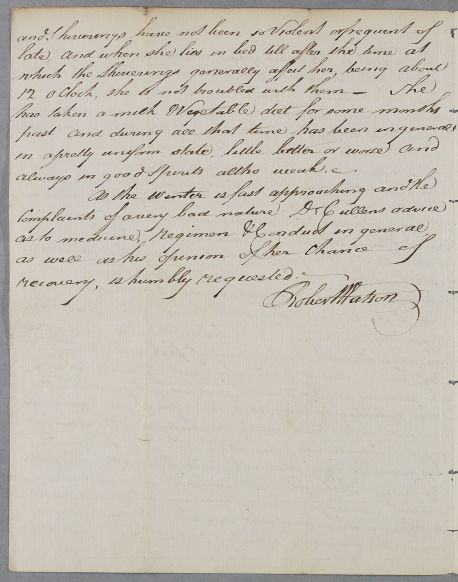 and Shiverings have not been so Violent or frequent of
late, and when she lies in bed till after the time at
which the Shiverings generally affect her, being about
12 o Clock, she is not troubled with them — She
has taken a milk & Vegetable diet for some months
past and during all that time has been in general
in a pretty uniform state, little better or worse and
always in good Spirits altho weak. —
As the winter is fast approaching and the
Complaints of a very bad nature Dr Cullens advice
as to medicine, regimen & Conduct in general,
as well as his Opinion of her Chance of
recovery, is humbly requested. —
Robert Watson